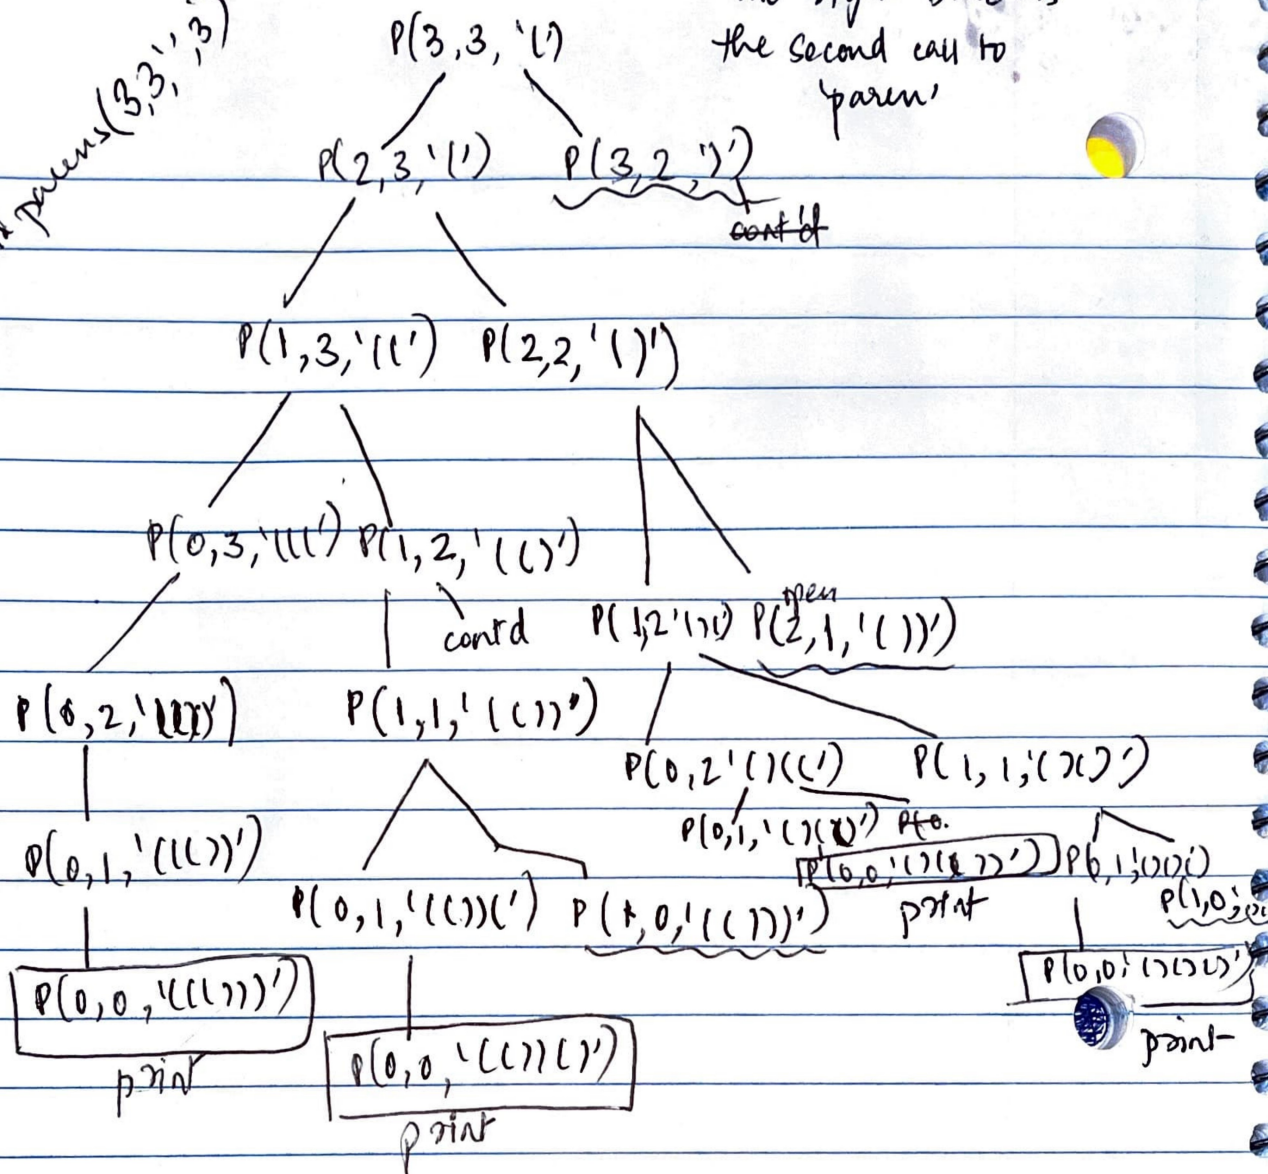 parens(3,3,'',3)
P(3,3,'(')
the second call to
'paren'
P(2,3,'(') P(3,2,')')
cont'd
P(1,3,'((') P(2,2,'()')
P(0,3,'(((') P(1,2,'(()')
cont'd
open
P(1,2'()(') P(2,1,'())')
P(0,2,'((()') P(1,1,'(())')
P(0,2'()((') P(1,1,'()()')
P(0,1,'()(()') P(0.
P(0,1,'((())') P(0,0,'()(())') P(0,1,'()()(')
P(0,1,'(())(') P(1,0,'(()))') print P(1,0,
P(0,0,'((()))') P(0,0,'()()()')
print P(0,0,'(())()') print
print